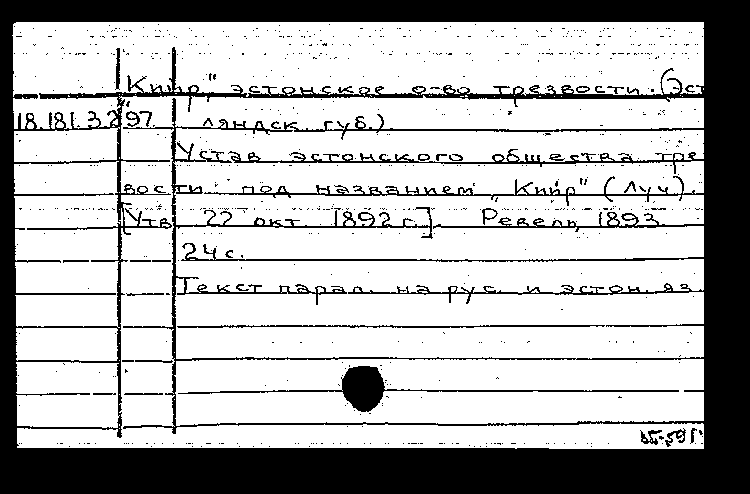 „Кийр", эстонское о-во трезвости. (Эст
18.181.3.297 ляндск. губ.)
Устав эстонского общества тре
вости под названием „Кийр" (Луч).
[Утв. 22 окт. 1892 г.]. Ревель, 1893.
24 с.
Текст парал. на рус. и эстон. яз.